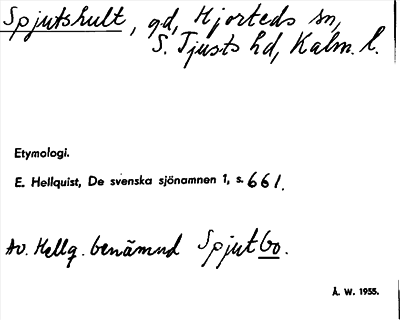 Spjutshult, gd, Hjorteds sn,
S. Tjusts hd, Kalm. l.
Etymologi.
E. Hellquist, De svenska sjönamnen 1, s. 661.
Av Hellq. benämnd Spjutbo.
Å. W. 1955.